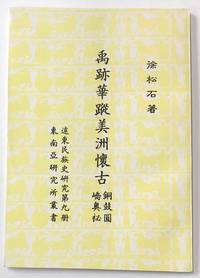 徐松石著
禹跡華蹤美洲懷古
銅鼓圓
嶠奧祕
遠東民族史研究第九册
東南亞研究所叢書